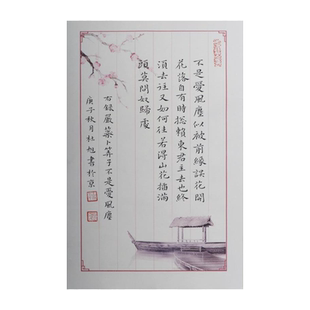 不是愛風塵似被前緣誤花開
花落自有時總賴東君主去也終
須去住又如何住若得山花插滿
頭莫問奴歸處
右録嚴蕊卜算子不是愛風塵
庚子秋月杜旭書於京